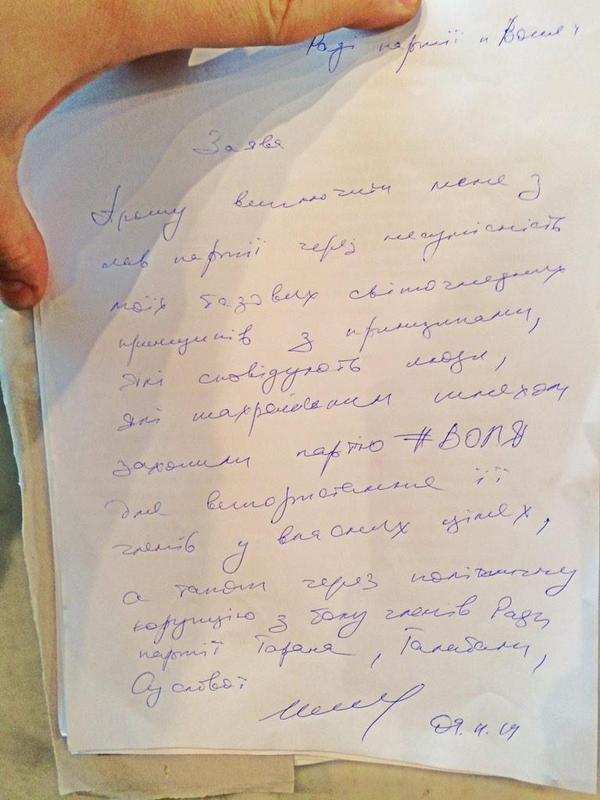 Раді партії "Воля"
Заява
Прошу виключити мене з
лав партії через несумісність
моїх базових світоглядних
принципів з принципами,
які сповідують люди,
які шахрайським шляхом
захопили партію #ВОЛЯ
для використання її
членів у власних цілях,
а також через політичну
корупцію з боку членів Ради
партії Тарана, Галабали,
Суслової